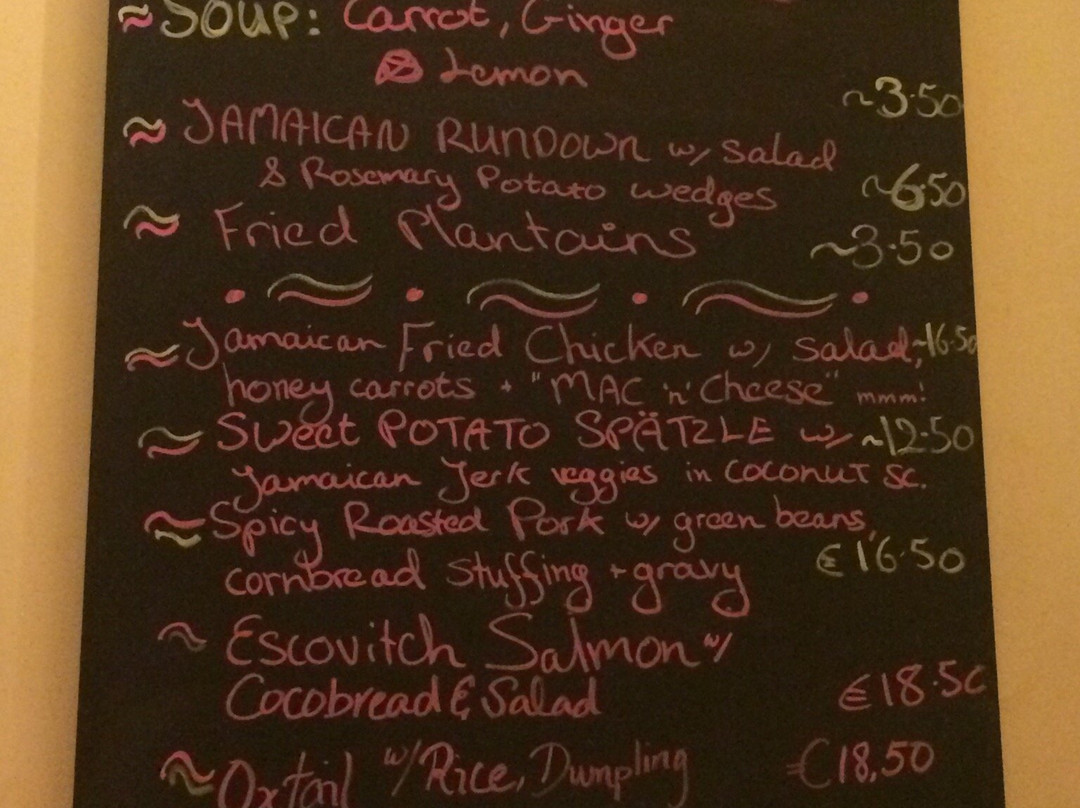 SOUP: Carrot, Ginger
Lemon
~3.50
JAMAICAN RUNDOWN w/ salad
& Rosemary Potato wedges ~6.50
Fried Plantains ~3.50
Jamaican Fried Chicken w/ salad, ~16.50
honey carrots + "MAC 'n' Cheese" mmm!
Sweet POTATO SPÄTZLE w/ ~12.50
Jamaican Jerk veggies in COCONUT SC.
Spicy Roasted Pork w/ green beans,
cornbread stuffing + gravy €16.50
Escovitch Salmon w/
Cocobread & Salad €18.50
Oxtail w/ Rice, Dumpling €18,50